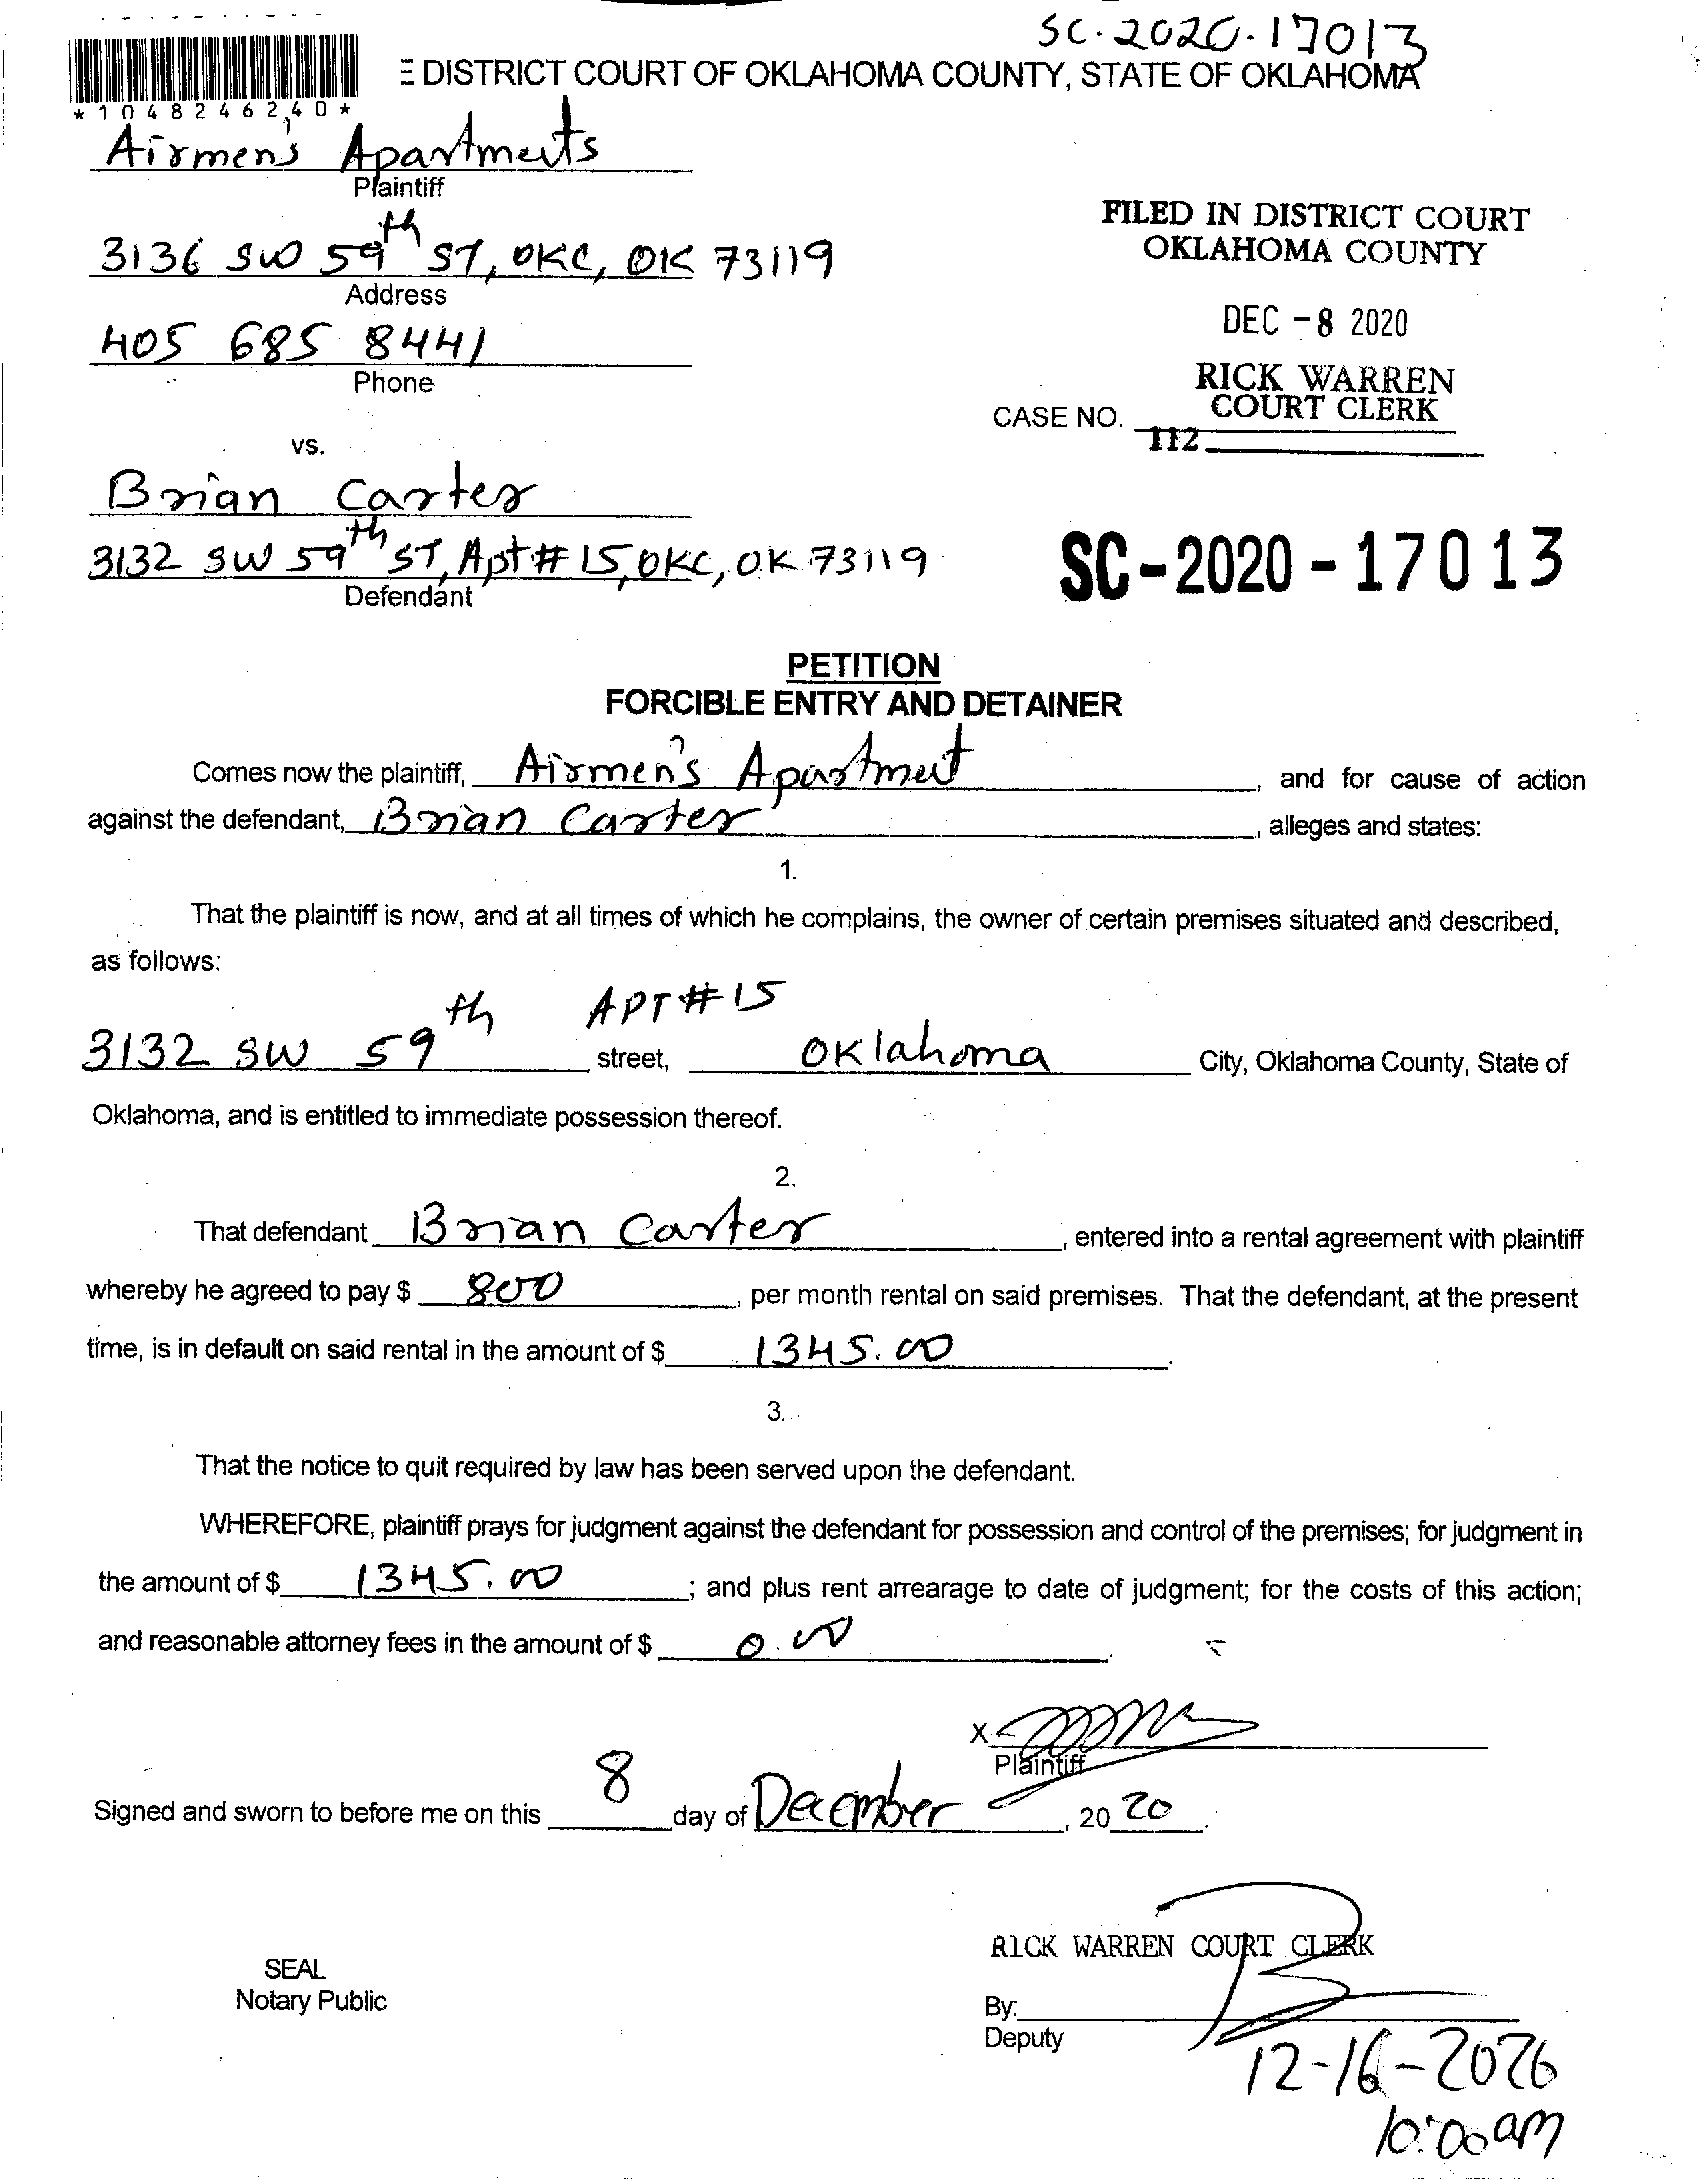 SC-2020-17013
E DISTRICT COURT OF OKLAHOMA COUNTY, STATE OF OKLAHOMA
*1048246240*
Airmen's Apartments
Plaintiff
3136 SW 59th ST, OKC, OK 73119
Address
405 685 8441
Phone
FILED IN DISTRICT COURT
OKLAHOMA COUNTY
DEC -8 2020
RICK WARREN
COURT CLERK
CASE NO.
112
vs.
Brian Carter
3132 SW 59th ST, Apt # 15, OKC, OK 73119
Defendant
SC-2020-17013
PETITION
FORCIBLE ENTRY AND DETAINER
Comes now the plaintiff, Airmen's Apartment, and for cause of action
against the defendant, Brian Carter, alleges and states:
1.
That the plaintiff is now, and at all times of which he complains, the owner of certain premises situated and described,
as follows:
APT # 15
3132 SW 59th street, Oklahoma City, Oklahoma County, State of
Oklahoma, and is entitled to immediate possession thereof.
2.
That defendant Brian Carter, entered into a rental agreement with plaintiff
whereby he agreed to pay $ 800, per month rental on said premises. That the defendant, at the present
time, is in default on said rental in the amount of $ 1345.00.
3.
That the notice to quit required by law has been served upon the defendant.
WHEREFORE, plaintiff prays for judgment against the defendant for possession and control of the premises; for judgment in
the amount of $ 1345.00; and plus rent arrearage to date of judgment; for the costs of this action;
and reasonable attorney fees in the amount of $ 0.00.
X
Plaintiff
Signed and sworn to before me on this 8 day of December, 2020.
RICK WARREN COURT CLERK
SEAL
Notary Public
By:
Deputy
12-16-2020
10:00am